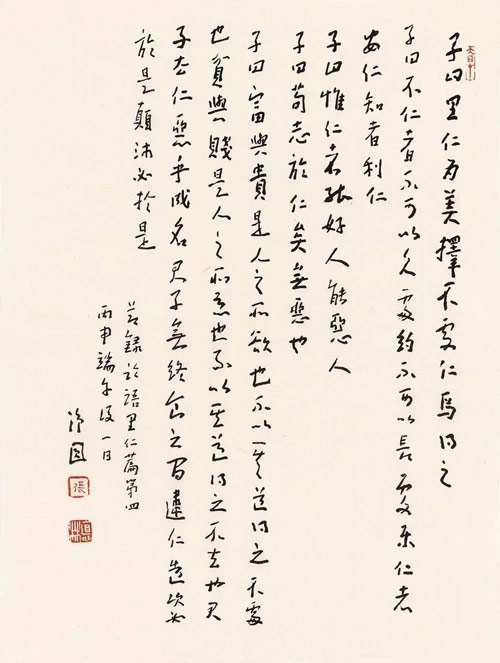 子曰里仁为美擇不處仁焉得之
子曰不仁者不可以久處約不可以長處樂仁者
安仁知者利仁
子曰惟仁者能好人能惡人
子曰苟志於仁矣無惡也
子曰富與貴是人之所欲也不以其道得之不處
也貧與賤是人之所惡也不以其道得之不去也君
子去仁惡乎成名君子無終食之間違仁造次必
於是顛沛必於是
节錄论語里仁篇第四
丙申端午後一日
張